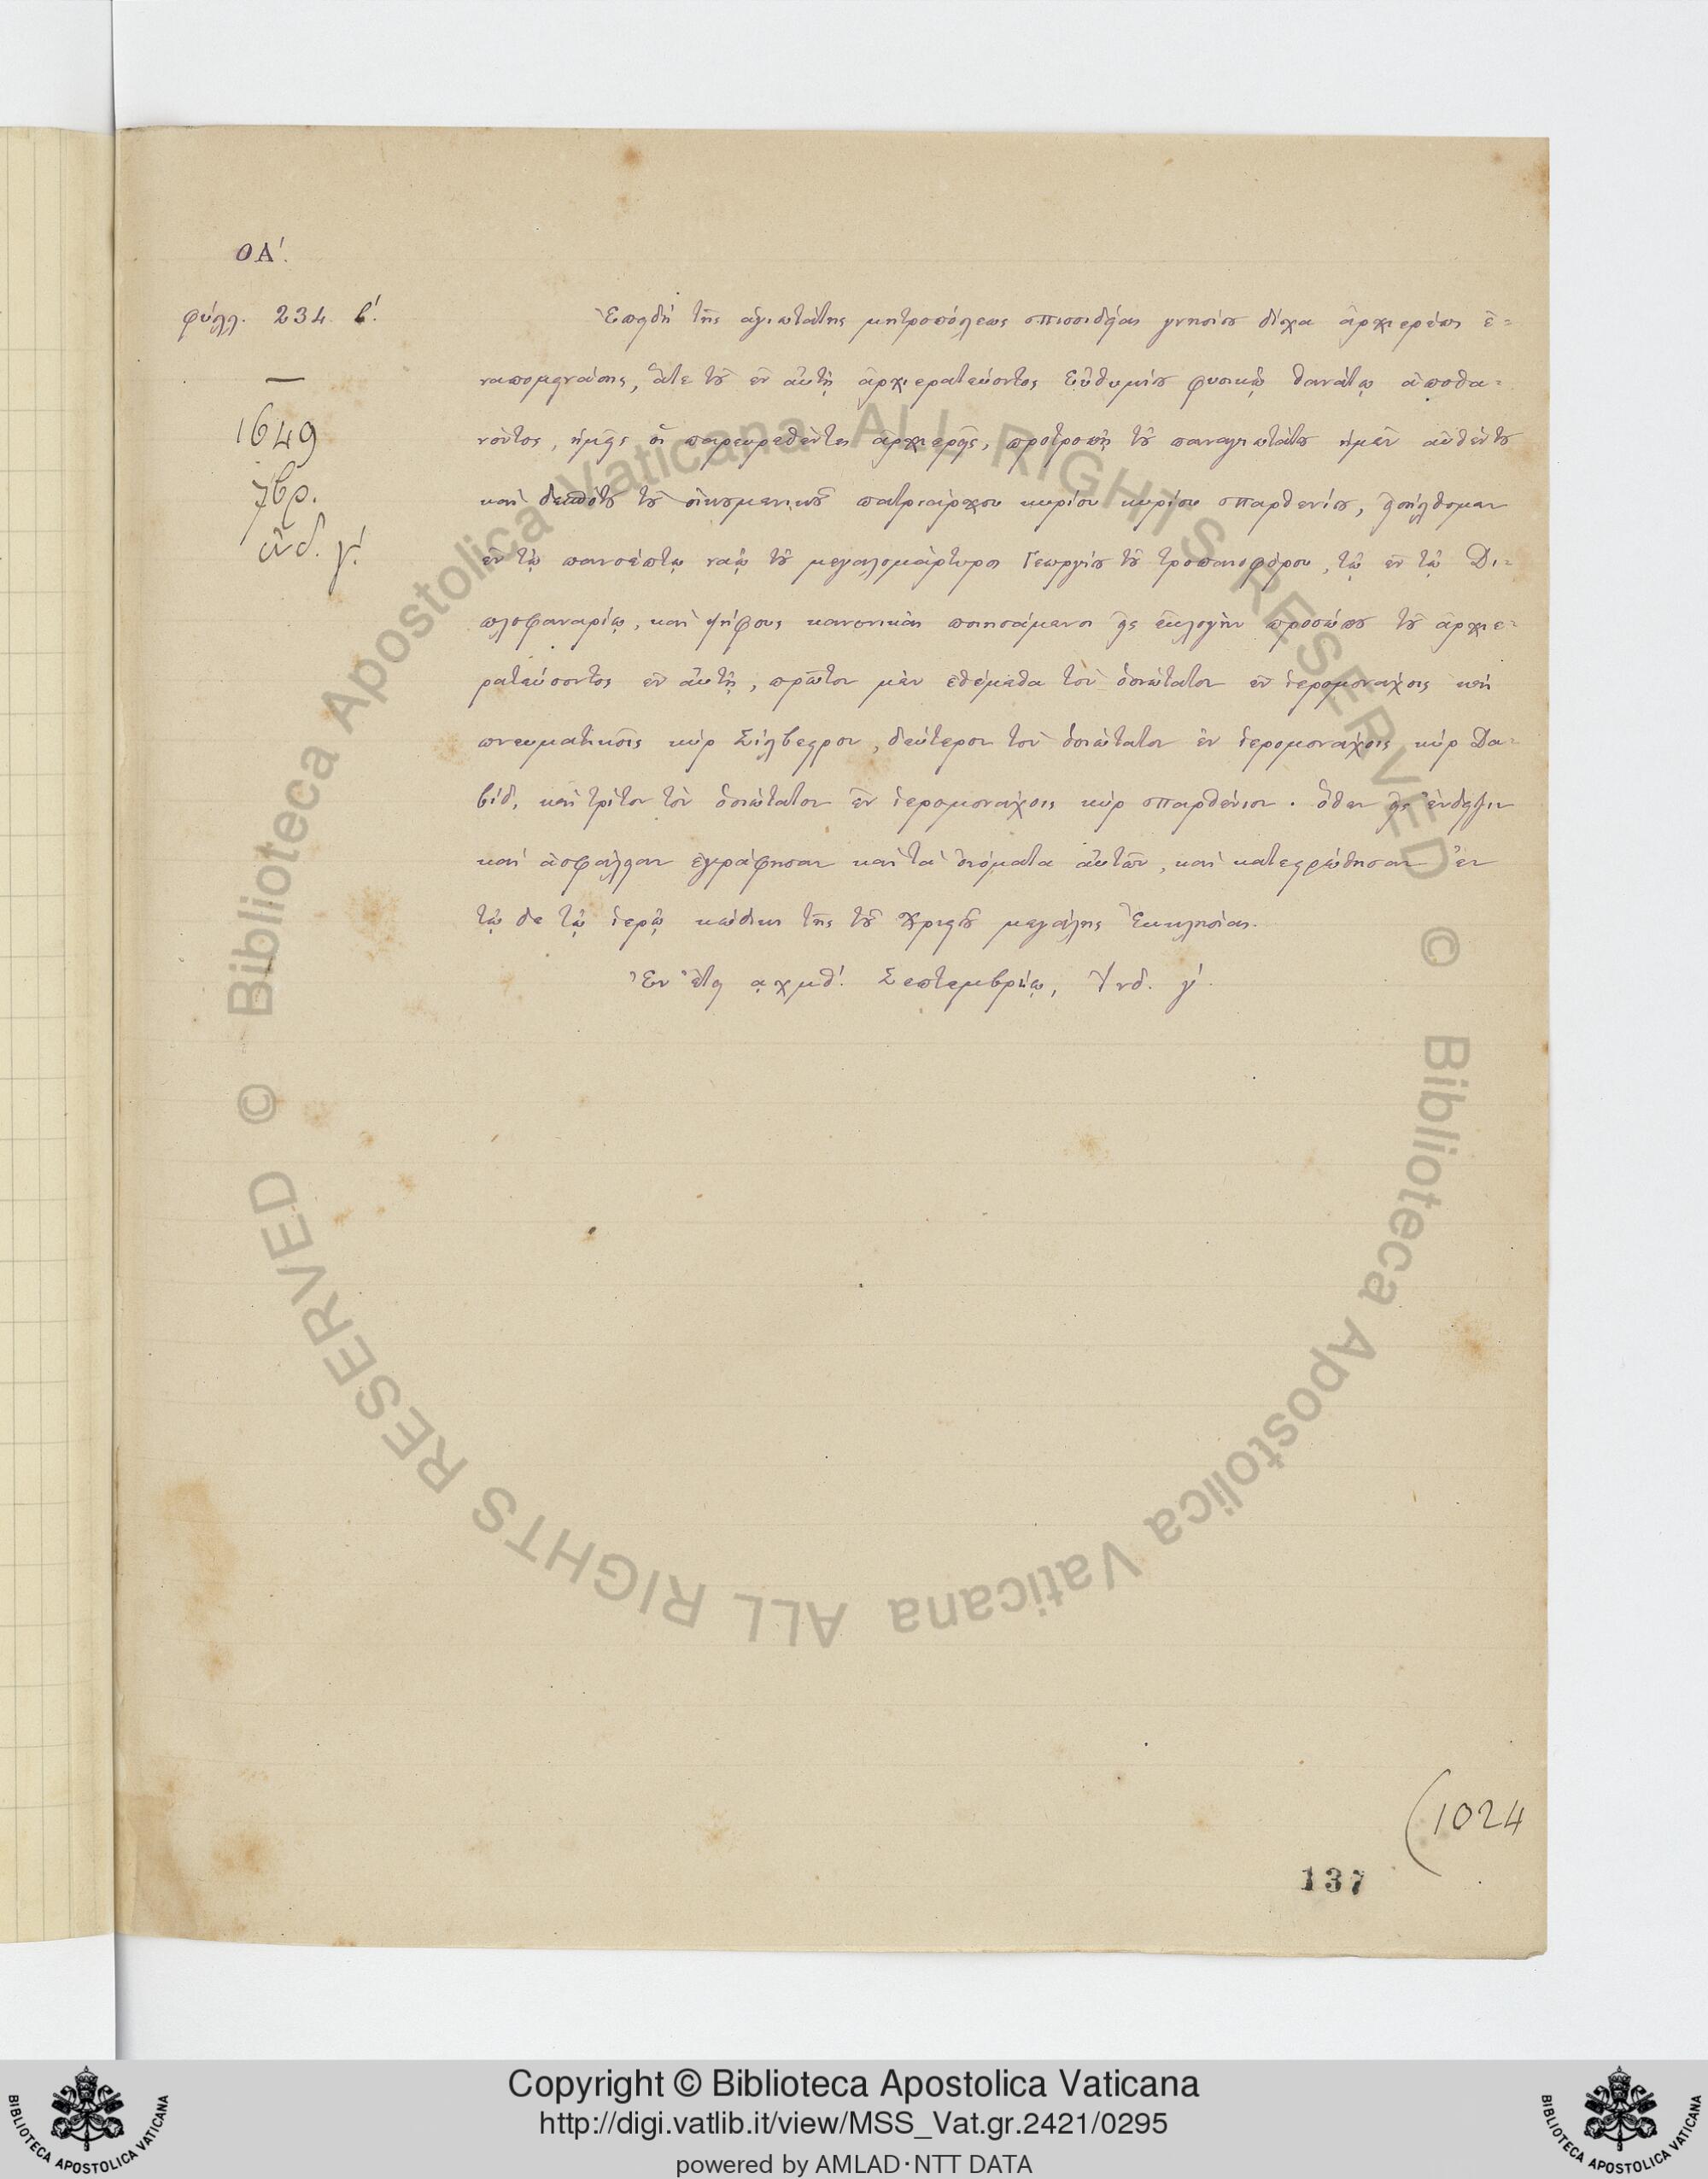 ΟΑ΄.
φύλλ. 234 β΄.
—
1649
7βρ.
ἰνδ. γ΄.
Ἐπειδὴ τῆς ἁγιωτάτης μητροπόλεως Πισσιδείας γνησίου δίχα ἀρχιερέως ἐ=
ναπομεινάσης, ἅτε τοῦ ἐν αὐτῇ ἀρχιερατεύοντος Εὐθυμίου φυσικῷ θανάτῳ ἀποθα=
νόντος, ἡμεῖς οἱ παρευρεθέντες ἀρχιερεῖς, προτροπῇ τοῦ παναγιωτάτου ἡμῶν αὐθέντου
καὶ δεσπότου τοῦ οἰκουμενικοῦ πατριάρχου κυρίου κυρίου Παρθενίου, εἰσήλθομεν
ἐν τῷ πανσέπτῳ ναῷ τοῦ μεγαλομάρτυρος Γεωργίου τοῦ τροπαιοφόρου, τῷ ἐν τῷ Δι=
πλοφαναρίῳ, καὶ ψήφους κανονικὰς ποιησάμενοι εἰς ἐκλογὴν προσώπου τοῦ ἀρχιε=
ρατεύσοντος ἐν αὐτῇ, πρῶτον μὲν ἐθέμεθα τὸν ὁσιώτατον ἐν ἱερομονάχοις καὶ
πνευματικοῖς κὺρ Σίλβεστρον, δεύτερον τὸν ὁσιώτατον ἐν ἱερομονάχοις κὺρ Δα=
βίδ, καὶ τρίτον τὸν ὁσιώτατον ἐν ἱερομονάχοις κὺρ Παρθένιον. ὅθεν εἰς ἔνδειξιν
καὶ ἀσφάλειαν ἐγράφησαν καὶ τὰ ὀνόματα αὐτῶν, καὶ κατεστρώθησαν ἐν
τῷ δε τῷ ἱερῷ κώδικι τῆς τοῦ Χριστοῦ μεγάλης Ἐκκλησίας.
Ἐν ἔτει αχμθ΄. Σεπτεμβρίῳ, Ἰνδ. γ΄.
(1024
137
© Biblioteca Apostolica Vaticana ALL RIGHTS RESERVED
© Biblioteca Apostolica Vaticana ALL RIGHTS RESERVED
Copyright © Biblioteca Apostolica Vaticana
http://digi.vatlib.it/view/MSS_Vat.gr.2421/0295
powered by AMLAD·NTT DATA
BIBLIOTECA APOSTOLICA VATICANA
BIBLIOTECA APOSTOLICA VATICANA